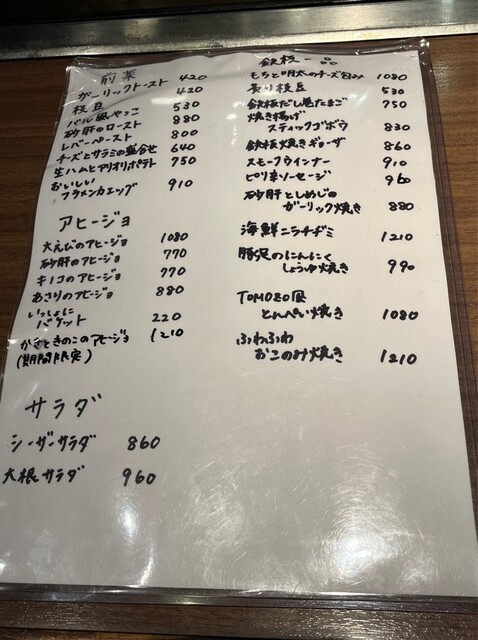 前菜
ガーリックトースト 420
枝豆 420
バル風やっこ 530
砂肝のロースト 880
レバーペースト 800
チーズとサラミの盛合せ 640
生ハムとアリオリポテト 750
おいしい
フラメンカエッグ 910
アヒージョ
大えびのアヒージョ 1080
砂肝のアヒージョ 770
キノコのアヒージョ 770
あさりのアヒージョ 880
いっしょに
バゲット 220
かきときのこのアヒージョ 1210
(期間限定)
サラダ
シーザーサラダ 860
大根サラダ 960
鉄板一品
もちと明太のチーズ包み 1080
炙り枝豆 530
鉄板だし巻たまご 750
焼き揚げ
スティックゴボウ 830
鉄板焼きギョーザ 860
スモークウインナー 910
ピリ辛ソーセージ 960
砂肝としめじの
ガーリック焼き 880
海鮮ニラチヂミ 1210
豚足のにんにく
しょうゆ焼き 990
TOMOZO風
とんぺい焼き 1080
ふわふわ
おこのみ焼き 1210